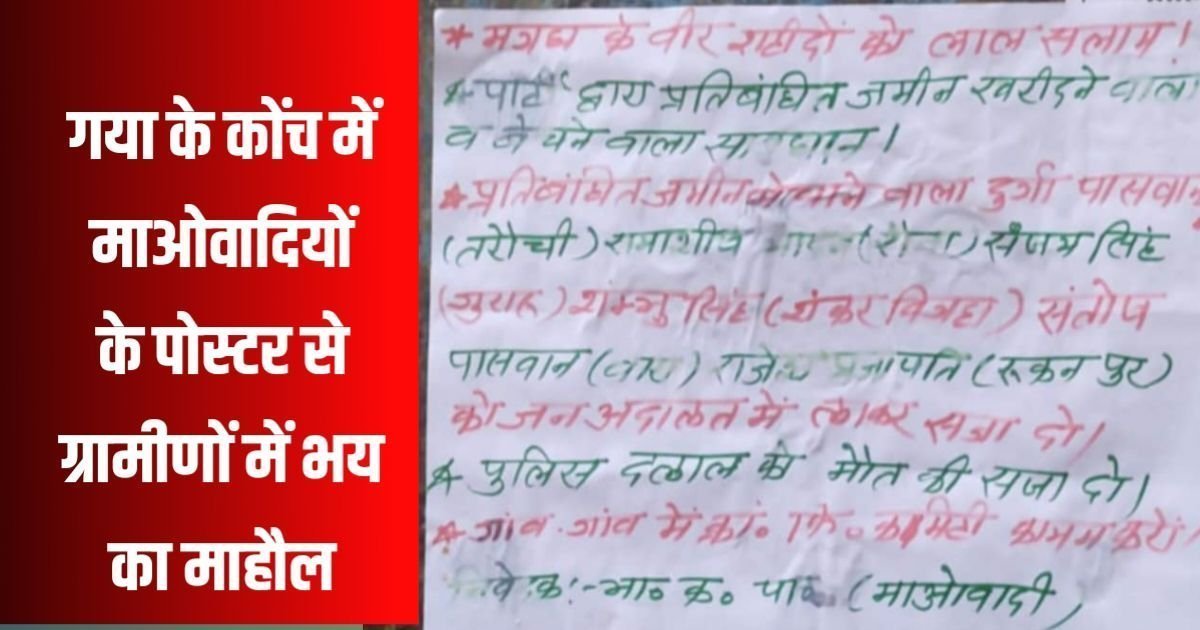 गया के कोंच में
माओवादियों
के पोस्टर से
ग्रामीणों में भय
का माहौल
* मगध के वीर शहीदों को लाल सलाम।
* द्वारा प्रतिबंधित जमीन खरीदने वाला
व बेचने वाला सावधान।
* प्रतिबंधित जमीन वाला दुर्गा पासवान
(तरौची) रामाशीष संजय सिंह
शम्भु सिंह (शंकर बिगहा) संतोष
पासवान प्रजापति (रूकनपुर)
को जन अदालत में लाकर सजा दो।
* पुलिस दलाल को मौत की सजा दो।
* गांव-गांव में क्रां० कि० कमिटी कायम करो
निवेदक:- भा० क० पा० (माओवादी)